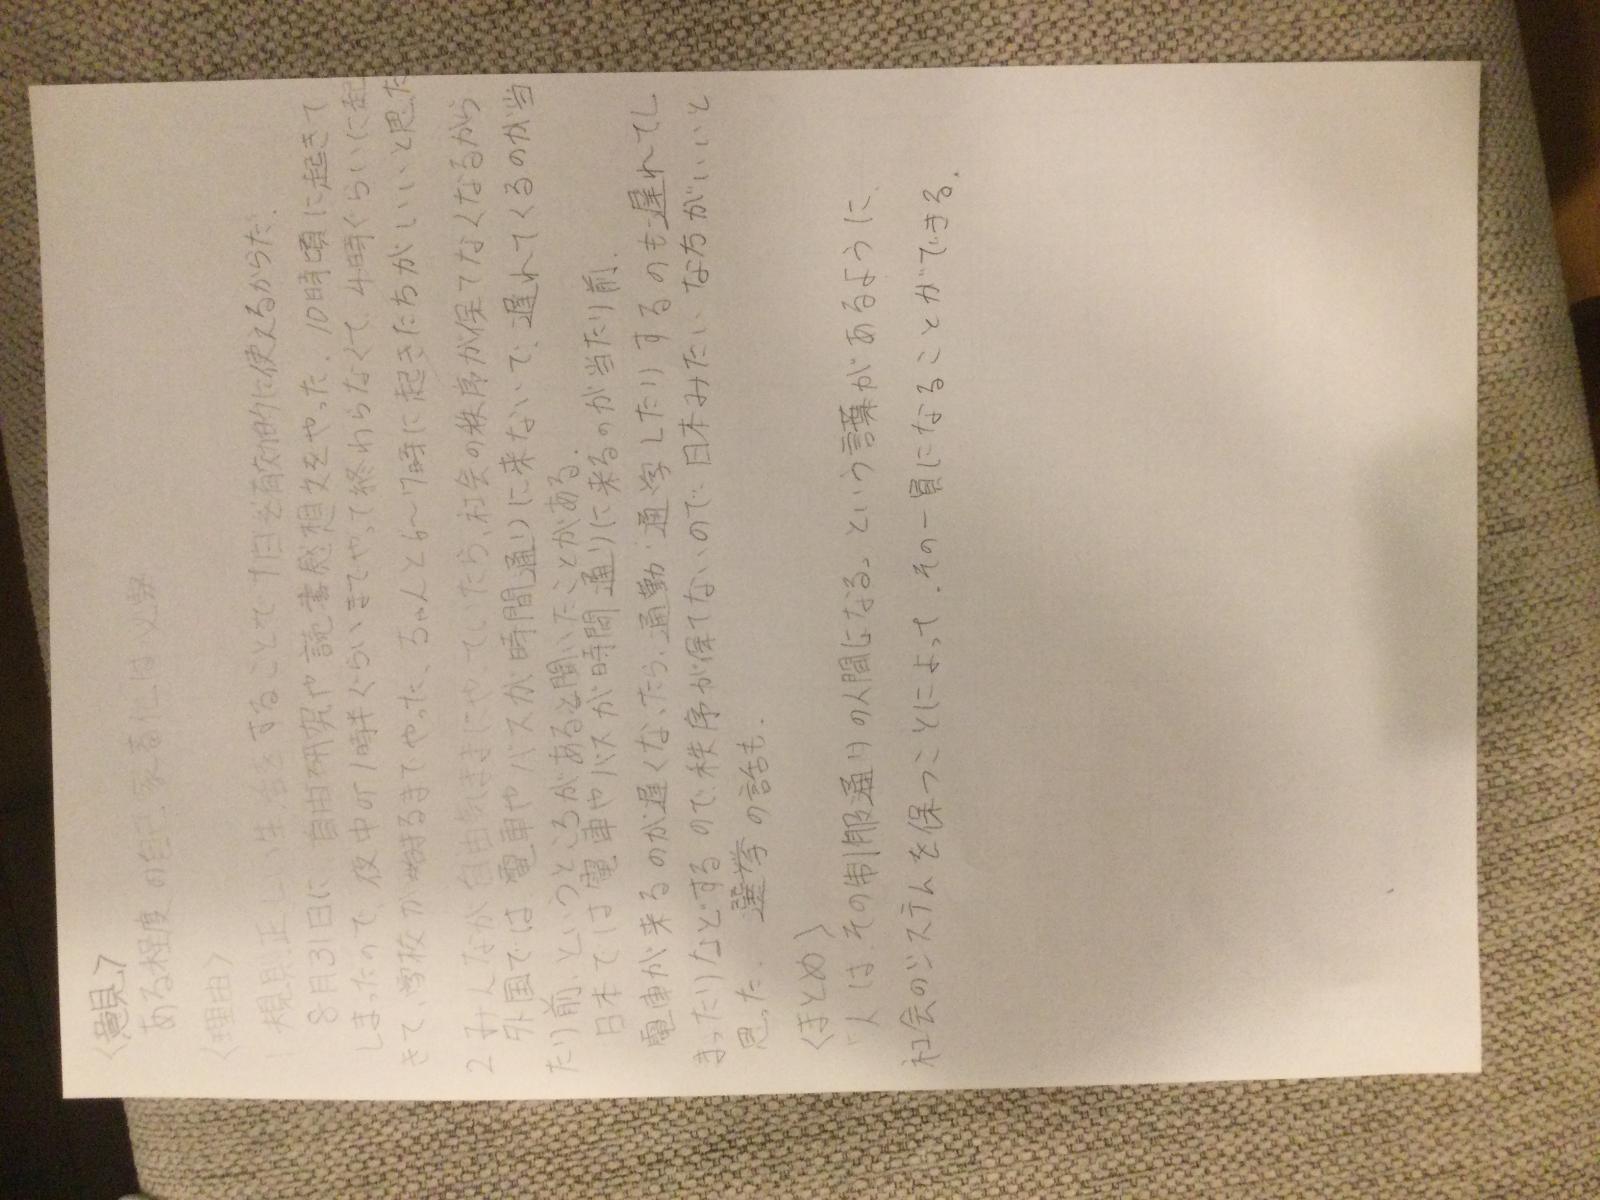 〈意見〉
ある程度の自己家畜化は必要
〈理由〉
1 規則正しい生活をすることで1日を有効的に使えるからだ.
8月31日に、自由研究や読書感想文をやった. 10時頃に起きて
しまったので、夜中の1時半ぐらいまでやって終わらなくて、4時ぐらいに起
きて、学校が始まるまでやった、ちゃんと6〜7時に起きたちがいいと思た
2 みんなが自由気ままにやっていたら、社会の秩序が保てなくなるから
外国では、電車やバスが時間通りに来ないで、遅れてくるのが当
たり前、というところがあると聞いたことがある.
日本では電車やバスが時間通りに来るのが当たり前.
電車が来るのが遅くなったら、通勤・通学したりするのも遅れてし
まったりなどするので、秩序が保てないので、日本みたいな方がいいと
思った. 選挙の話も.
〈まとめ〉
「人は、その制服通りの人間になる。」という言葉があるように、
社会のシステムを保つことによって、その一員になることができる.